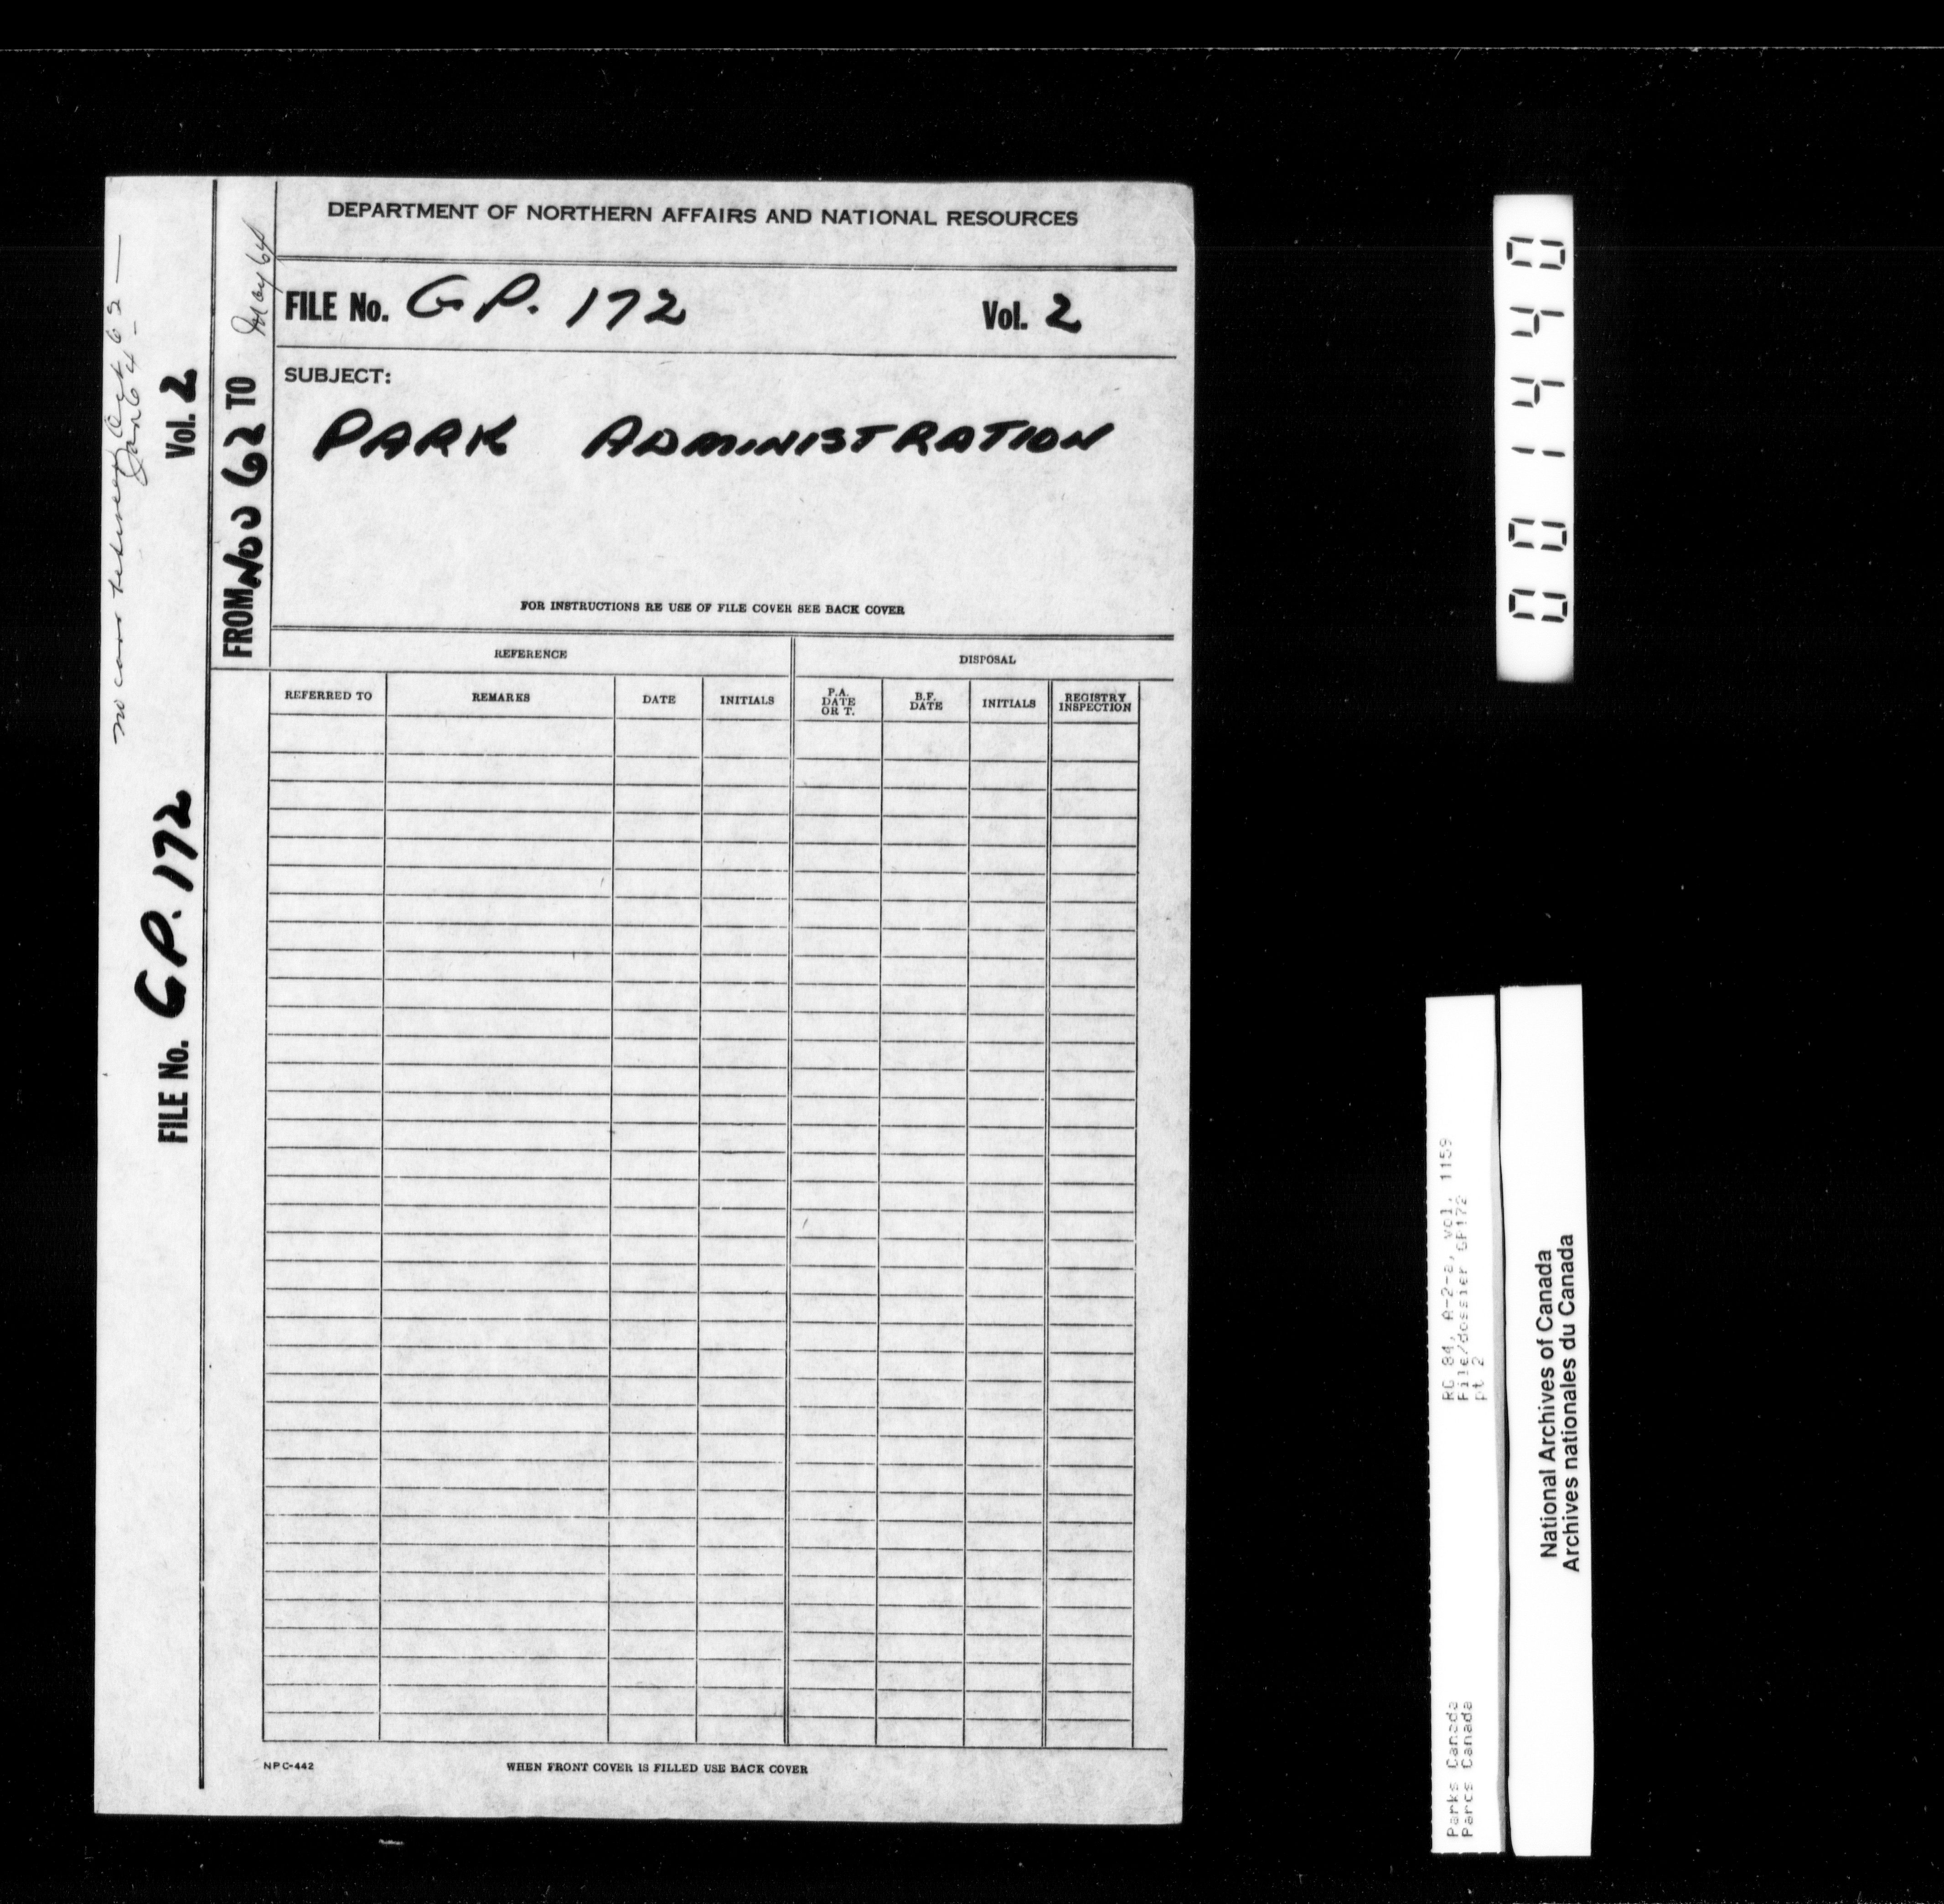 DEPARTMENT OF NORTHERN AFFAIRS AND NATIONAL RESOURCES
FILE No. G.P. 172 Vol. 2
SUBJECT:
PARK ADMINISTRATION
FOR INSTRUCTIONS RE USE OF FILE COVER SEE BACK COVER
REFERENCE DISPOSAL
REFERRED TO REMARKS DATE INITIALS P.A. DATE OR T. B.F. DATE INITIALS REGISTRY INSPECTION
NPC-442 WHEN FRONT COVER IS FILLED USE BACK COVER
FROM Nov 62 TO May 64
FILE No. GP. 172 Vol. 2
no corr between Oct 62 —
Jan 64 -
001440
Parks Canada RG 84, A-2-a, vol. 1159
Parcs Canada File/dossier GP172
pt 2
National Archives of Canada
Archives nationales du Canada